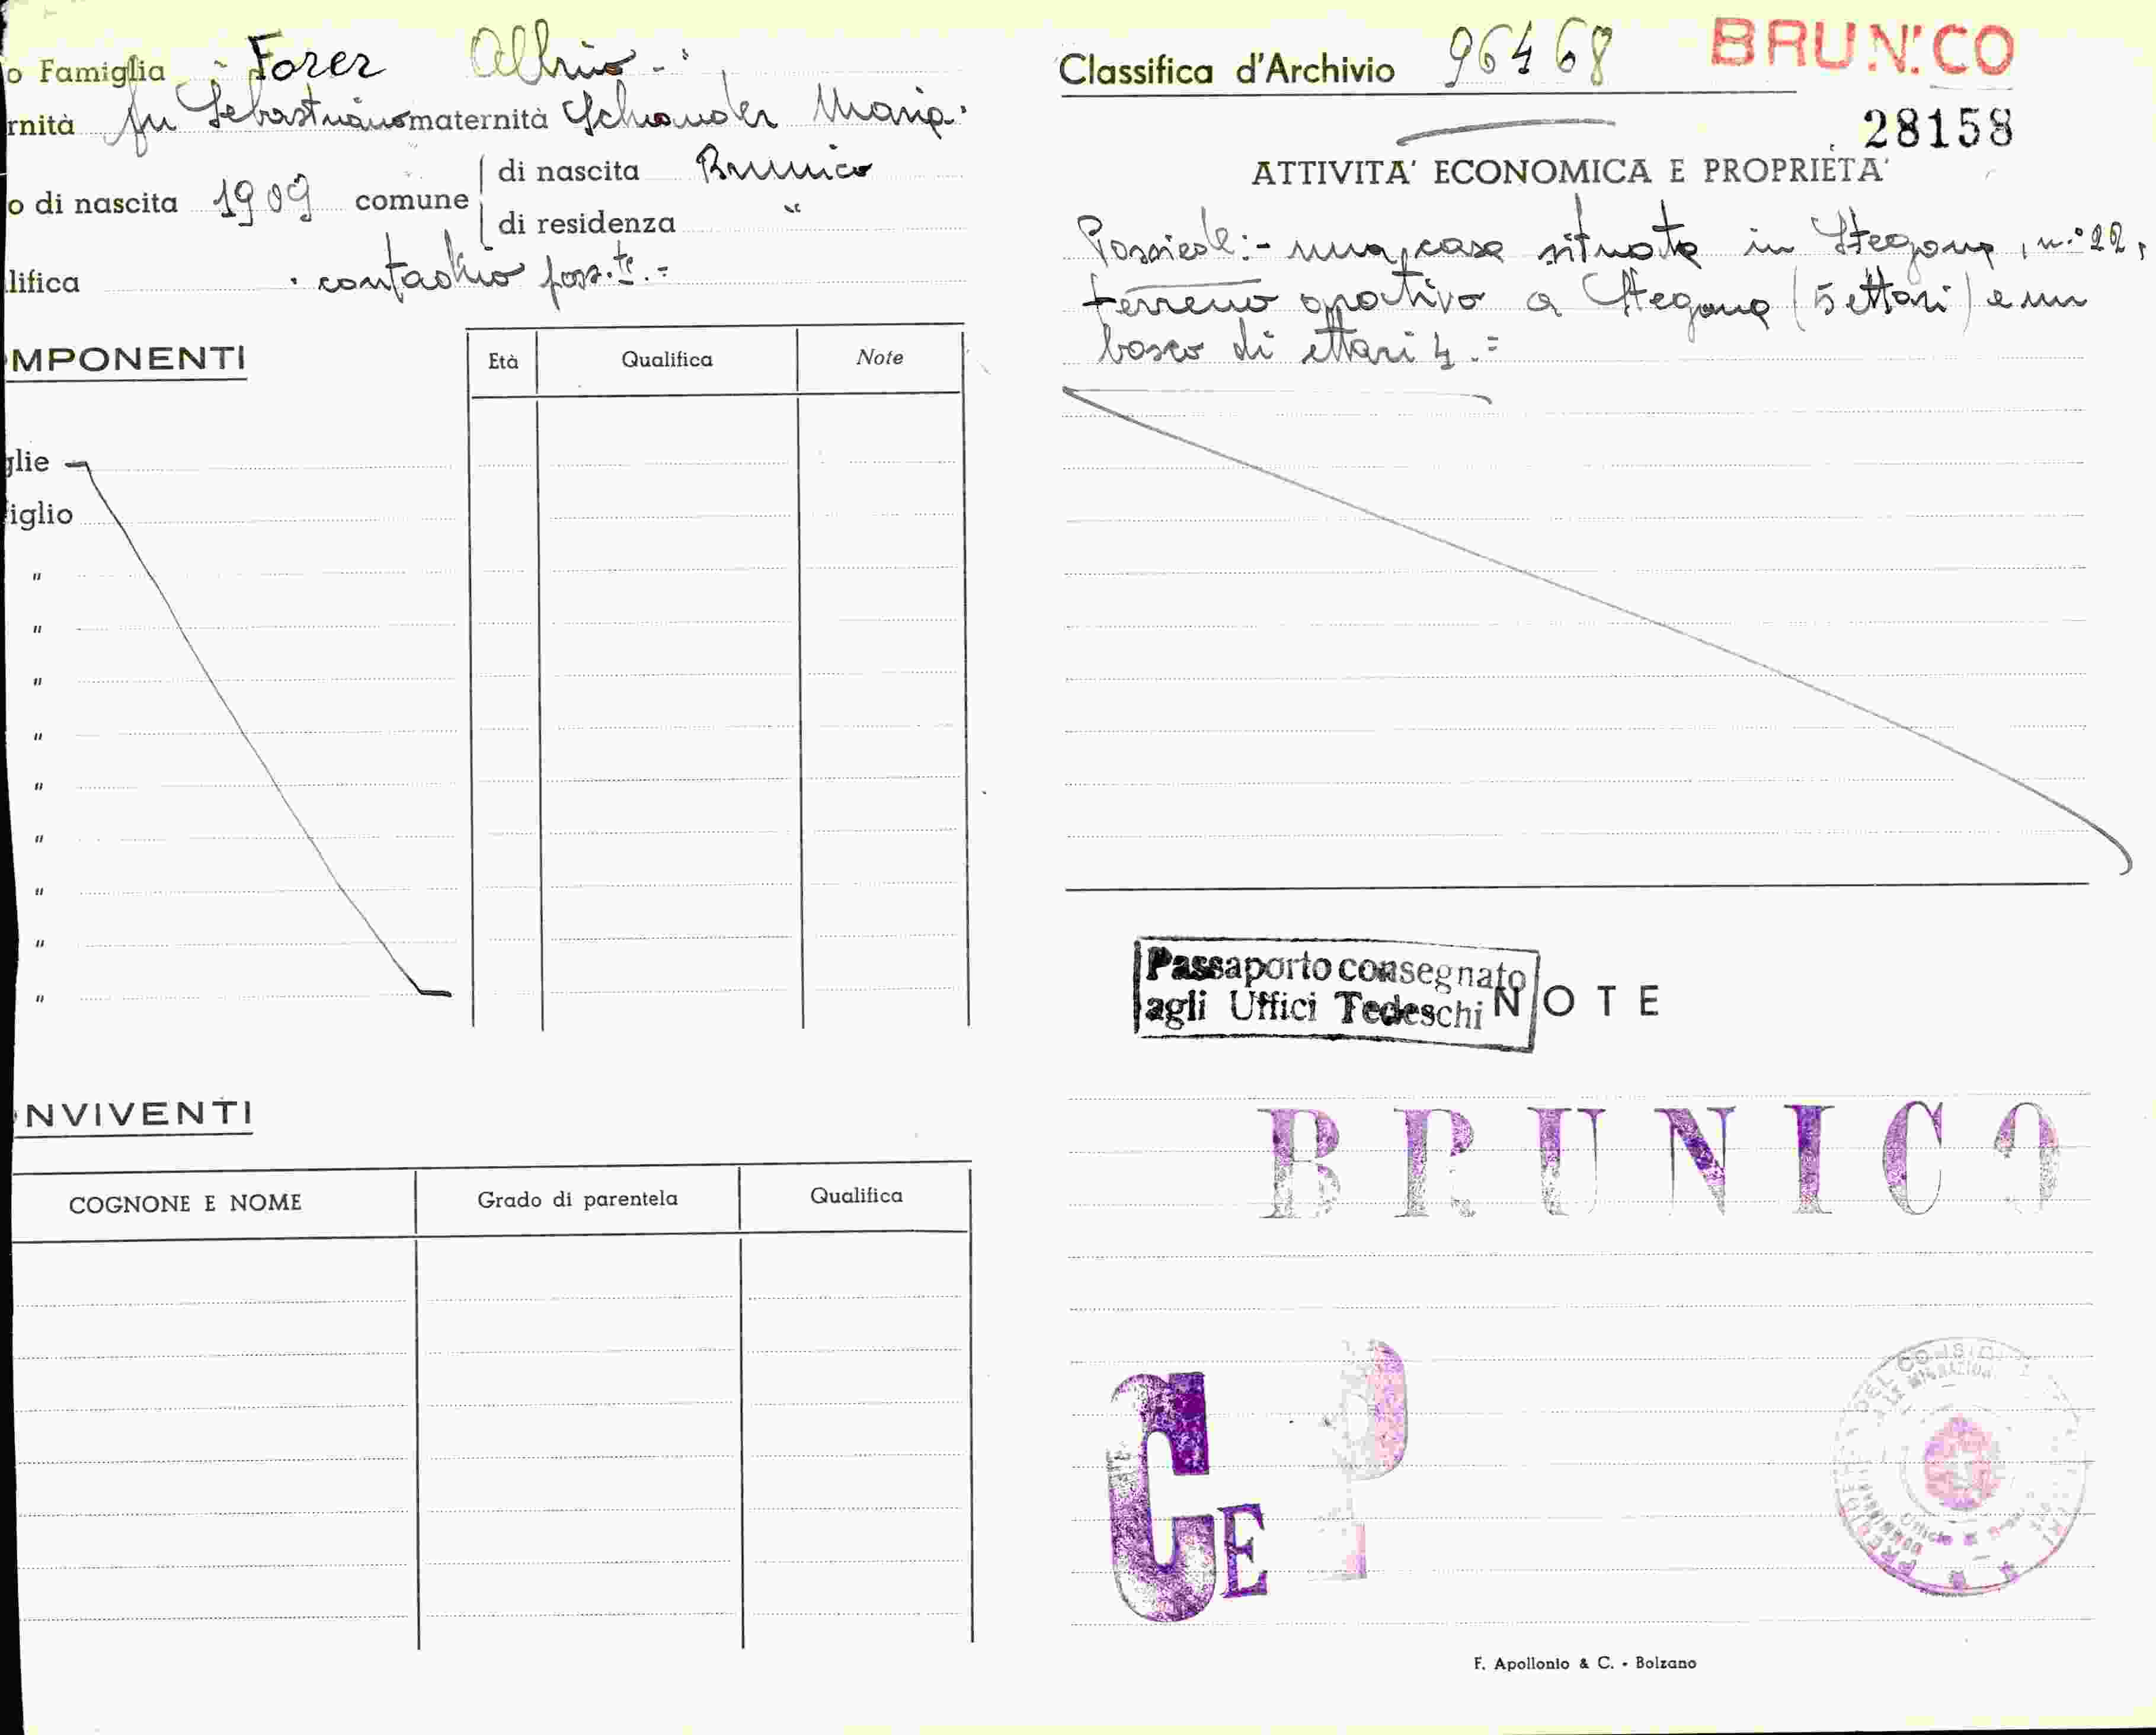 o Famiglia Forer Albino
rnità fu Sebastiano maternità Maria
o di nascita 1909 comune
di nascita Brunico
di residenza "
lifica contadino poss.te
MPONENTI
Età Qualifica Note
glie
iglio
"
"
"
"
"
"
"
"
"
NVIVENTI
COGNONE E NOME Grado di parentela Qualifica
Classifica d'Archivio 96468 BRUNICO
28158
ATTIVITA' ECONOMICA E PROPRIETA'
Possiede:- una casa situata in Stegona, n.° 22,
terreno a Stegona (5 ettari) e un
bosco di ettari 4.=
Passaporto consegnato
agli Uffici Tedeschi
NOTE
BRUNICO
CE
P
I
F. Apollonio & C. - Bolzano